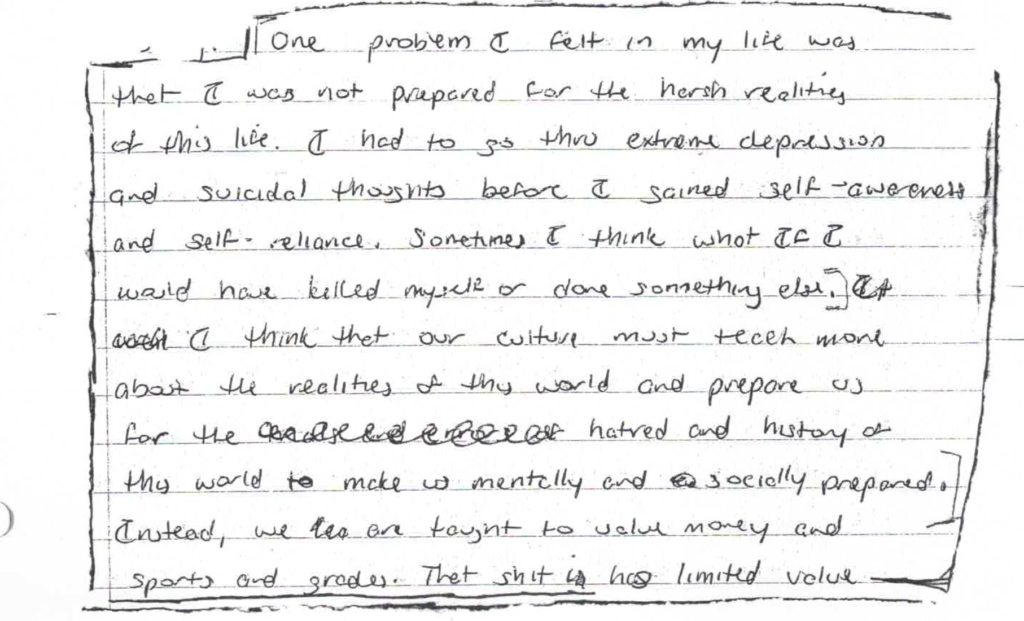 One problem I felt in my life was
that I was not prepared for the harsh realities
of this life. I had to go thru extreme depression
and suicidal thoughts before I gained self-awareness
and self-reliance. Sometimes I think what If I
would have killed myself or done something else.] It
I think that our culture must teach more
about the realities of this world and prepare us
for the hatred and history of
this world to make us mentally and socially prepared.
Instead, we are taught to value money and
sports and grades. That shit is has limited value